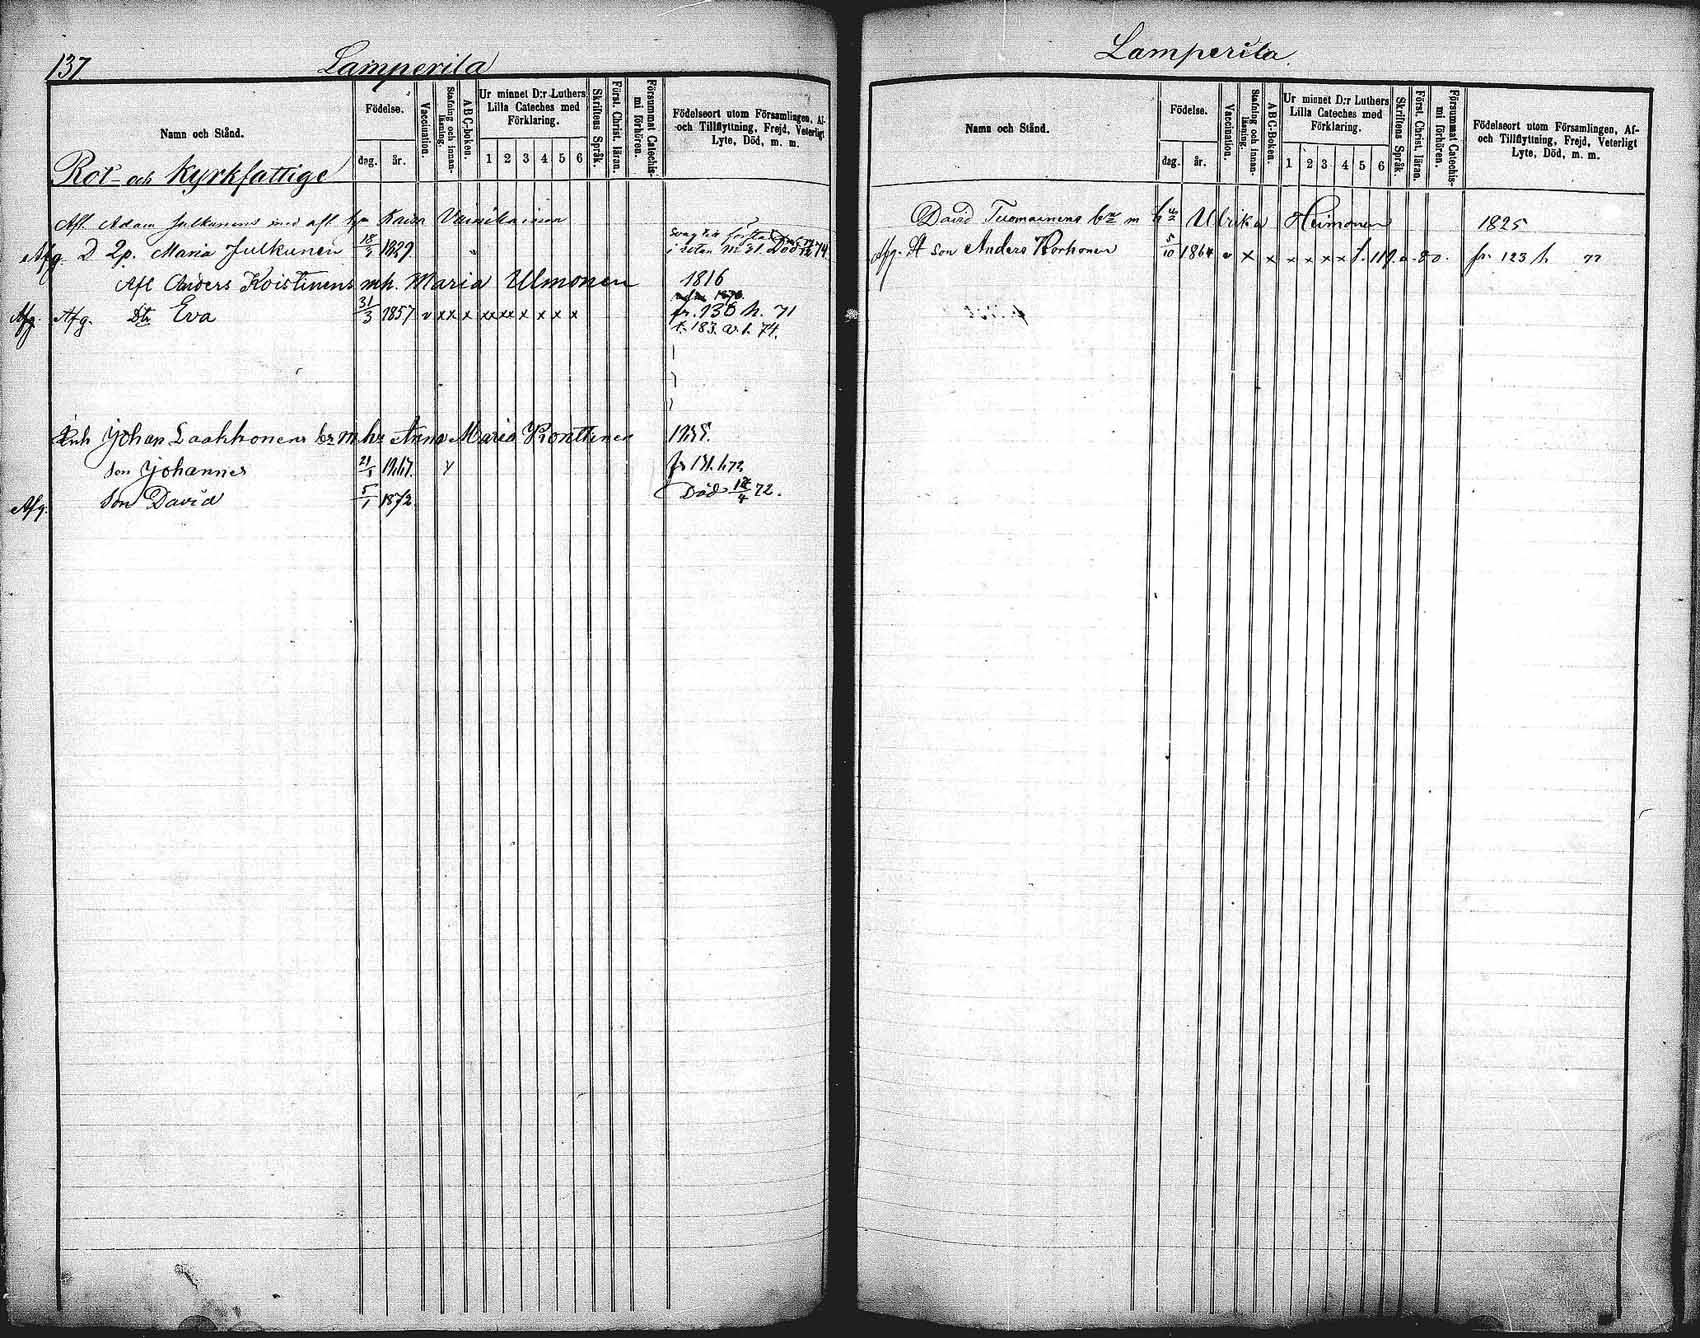 137 Lamperila
Namn och Stånd.
Födelse.
dag. år.
Vaccination.
Stafning och innan-läsning.
ABC-boken.
Ur minnet D:r Luthers
Lilla Cateches med
Förklaring.
1 2 3 4 5 6
Skriftens Språk.
Först. Christ. läran.
Försummat Catechis-
mi förhören.
Födelseort utom Församlingen, Af-
och Tillflyttning, Frejd, Veterligt
Lyte, Död, m. m.
Rot- och Kyrkfattige
Afl. Adam Julkunens med afl. Kaisa
Afg. D. Maria Julkunen 18/5 1829
i Död 74
Afl Anders Koistinens m h. Maria Ulmonen 1816
Afg. Afg. Dtr Eva 31/3 1857 v x x x x x x x x x x fr. 136 h. 71
t. 183. 74.
Inh Johan Laakkonens m hu Anna Maria Konttinen
Son Johannes 21/1 v fr 131. h 72
Afg. Son David 5/1 1872 Död 12/4 72.
Lamperila.
Namn och Stånd.
Födelse.
dag. år.
Vaccination.
Stafning och innan-läsning.
ABC-boken.
Ur minnet D:r Luthers
Lilla Cateches med
Förklaring.
1 2 3 4 5 6
Skriftens Språk.
Först. Christ. läran.
Försummat Catechis-
mi förhören.
Födelseort utom Församlingen, Af-
och Tillflyttning, Frejd, Veterligt
Lyte, Död, m. m.
David Tuomainens m h Ulrika Heimonen 1825
Afg. A son Anders Korhonen 5/10 1864 v x x x x x x t. 119. 80. fr. 123 h 77